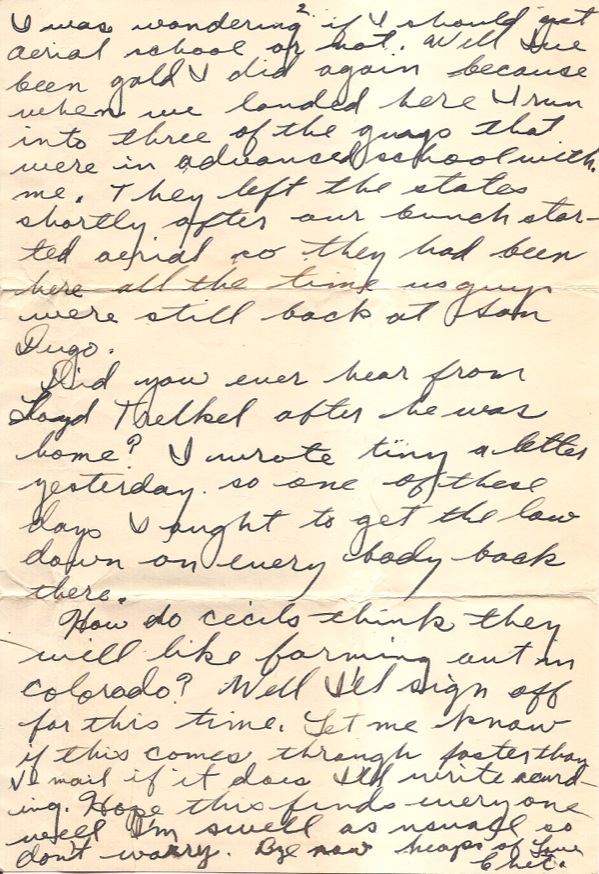 2
I was wondering if I should get
aerial school or not. Well I've
been gald I did again because
when we landed here I run
into three of the guys that
were in advanced school with
me. They left the states
shortly after our bunch star-
ted aerial so they had been
here all the time us guys
were still back at San
Diego.
Did you ever hear from
Loyd Thelkel after he was
home? I wrote tiny a letter
yesterday. so one of these
days I ought to get the low
down on every body back
there.
How do cecils think they
will like farming out in
colorado? Well I'll sign off
for this time. Let me know
if this comes through faster than
V mail if it does I'll write acurd-
ing. Hope this finds everyone
well I'm swell as usual so
don't worry. Bye now heaps of love
Chet.